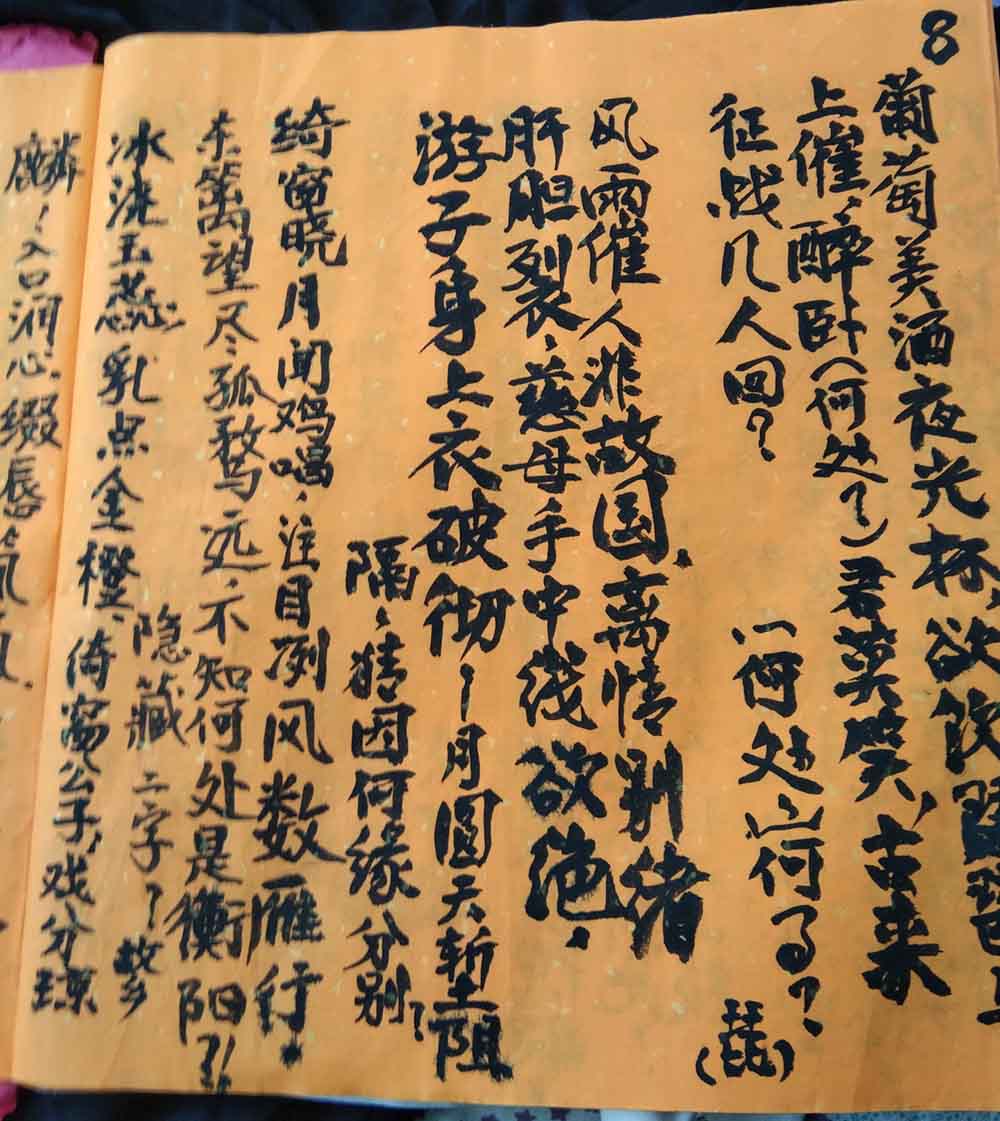 8
葡萄美酒夜光杯,欲饮琵琶马上
上催,醉卧(何处?)君莫笑,古来
征战几人回?
(何处?何了?
(琵琶)
风雨催人非故国,离情别绪
肝胆裂,慈母手中线欲绝,
游子身上衣破彻~月圆天堑阻
隔,猜因何缘分别?
绮窗晓月闻鸡唱,注目冽风数雁行.
东篱望尽孤鹜远,不知何处是衡阳?!
隐藏二字~故乡
冰洗玉蕊,乳点金橙,倚窗公子,戏分琼
麟~入口润心,缀唇